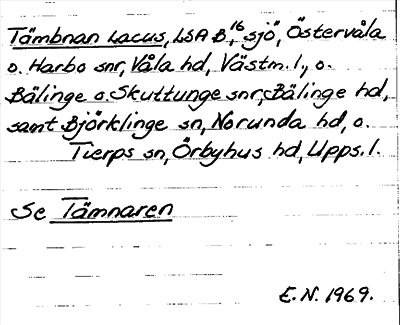 Tämbnan Lacus, LSA B 16, sjö, Östervåla
o. Harbo snr, Våla hd, Västm. l., o.
Bälinge o. Skuttunge snr, Bälinge hd,
samt Björklinge sn, Norunda hd, o.
Tierps sn, Örbyhus hd, Upps. l.
Se Tämnaren
E.N. 1969.